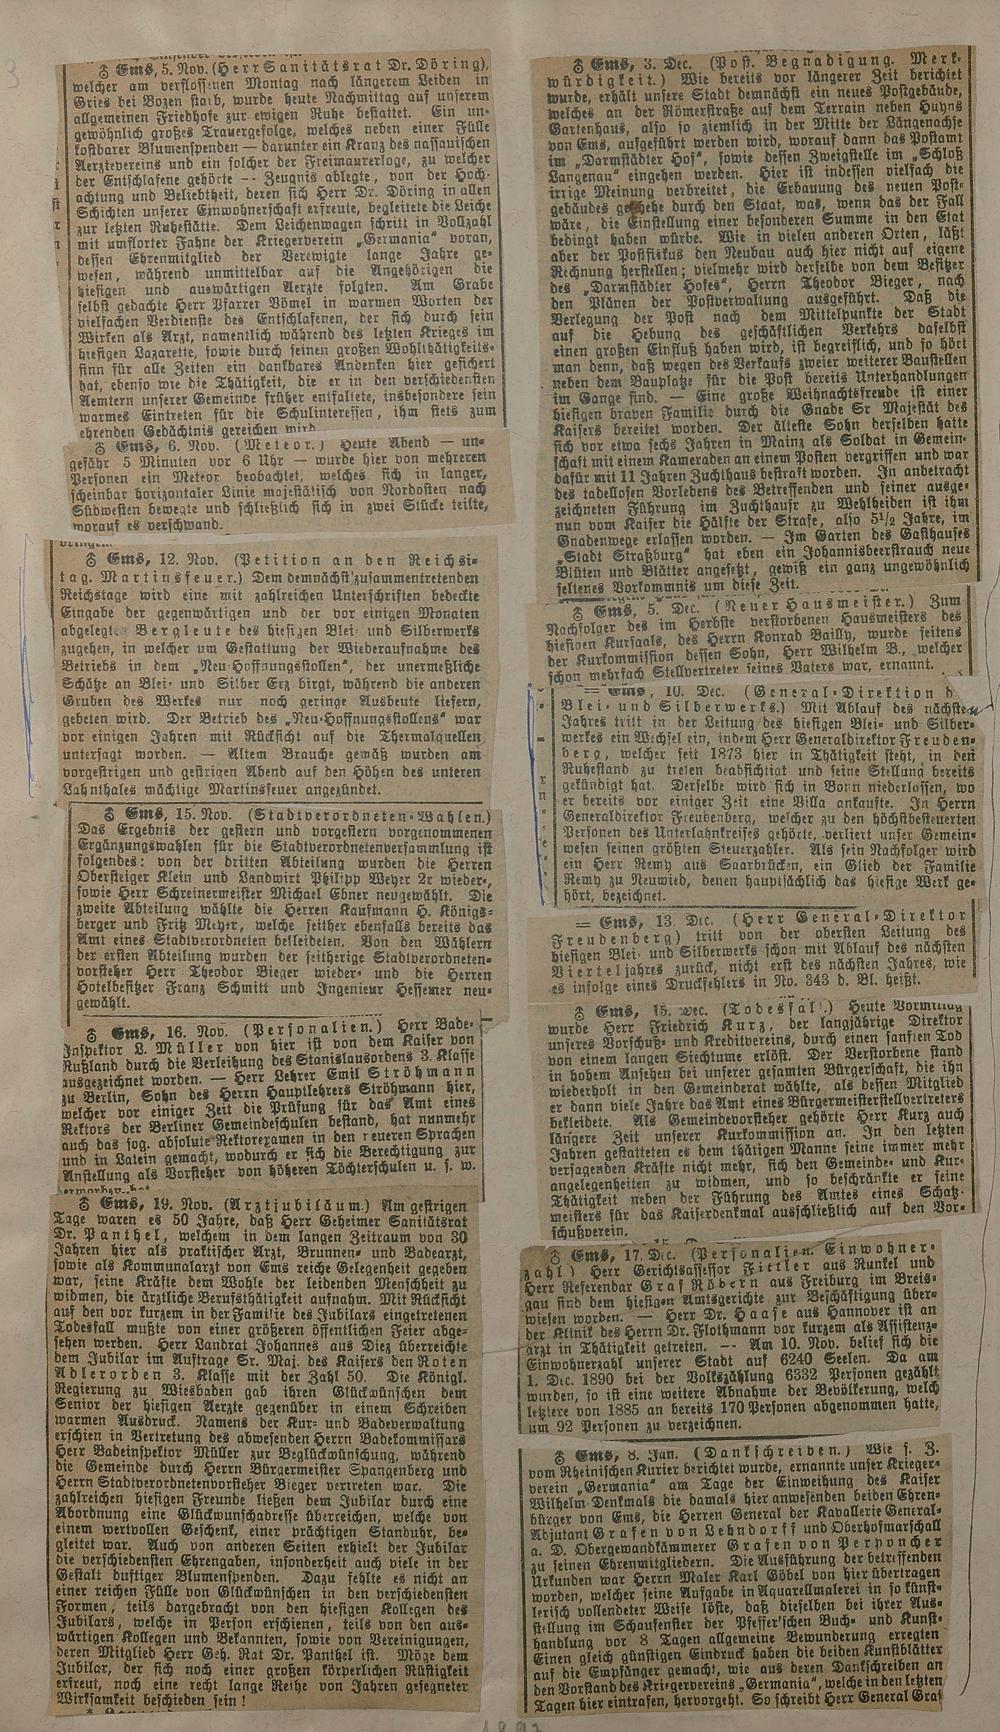 ♂ Ems, 5. Nov. (Herr Sanitätsrat Dr. Döring),
welcher am verflossenen Montag nach längerem Leiden in
Gries bei Bozen starb, wurde heute Nachmittag auf unserem
allgemeinen Friedhofe zur ewigen Ruhe bestattet. Ein un-
gewöhnlich großes Trauergefolge, welches neben einer Fülle
kostbarer Blumenspenden — darunter ein Kranz des nassauischen
Aerztevereins und ein solcher der Freimaurerloge, zu welcher
der Entschlafene gehörte -- Zeugnis ablegte, von der Hoch-
achtung und Beliebtheit, deren sich Herr Dr. Döring in allen
Schichten unserer Einwohnerschaft erfreute, begleitete die Leiche
zur letzten Ruhestätte. Dem Leichenwagen schritt in Vollzahl
mit umflorter Fahne der Kriegerverein „Germania“ voran,
dessen Ehrenmitglied der Verewigte lange Jahre ge-
wesen, während unmittelbar auf die Angehörigen die
hiesigen und auswärtigen Aerzte folgten. Am Grabe
selbst gedachte Herr Pfarrer Vömel in warmen Worten der
vielfachen Verdienste des Entschlafenen, der sich durch sein
Wirken als Arzt, namentlich während des letzten Krieges im
hiesigen Lazarette, sowie durch seinen großen Wohlthätigkeits-
sinn für alle Zeiten ein dankbares Andenken hier gesichert
hat, ebenso wie die Thätigkeit, die er in den verschiedensten
Aemtern unserer Gemeinde früher entfaltete, insbesondere sein
warmes Eintreten für die Schulinteressen, ihm stets zum
ehrenden Gedächtnis gereichen wird.
♂ Ems, 6. Nov. (Meteor.) Heute Abend — un-
gefähr 5 Minuten vor 6 Uhr — wurde hier von mehreren
Personen ein Meteor beobachtet, welches sich in langer,
scheinbar horizontaler Linie majestätisch von Nordosten nach
Südwesten bewegte und schließlich sich in zwei Stücke teilte,
worauf es verschwand.
♂ Ems, 12. Nov. (Petition an den Reichs-
tag. Martinsfeuer.) Dem demnächst zusammentretenden
Reichstage wird eine mit zahlreichen Unterschriften bedeckte
Eingabe der gegenwärtigen und der vor einigen Monaten
abgelegten Bergleute des hiesigen Blei- und Silberwerks
zugehen, in welcher um Gestattung der Wiederaufnahme des
Betriebs in dem „Neu-Hoffnungsstollen“, der unermeßliche
Schätze an Blei- und Silber Erz birgt, während die anderen
Gruben des Werkes nur noch geringe Ausbeute liefern,
gebeten wird. Der Betrieb des „Neu-Hoffnungsstollens“ war
vor einigen Jahren mit Rücksicht auf die Thermalquellen
untersagt worden. — Altem Brauche gemäß wurden am
vorgestrigen und gestrigen Abend auf den Höhen des unteren
Lahnthales mächtige Martinsfeuer angezündet.
♂ Ems, 15. Nov. (Stadtverordneten-Wahlen.)
Das Ergebnis der gestern und vorgestern vorgenommenen
Ergänzungswahlen für die Stadtverordnetenversammlung ist
folgendes: von der dritten Abteilung wurden die Herren
Obersteiger Klein und Landwirt Philipp Weyer 2r wieder-,
sowie Herr Schreinermeister Michael Ebner neugewählt. Die
zweite Abteilung wählte die Herren Kaufmann H. Königs-
berger und Fritz Meyer, welche seither ebenfalls bereits das
Amt eines Stadtverordneten bekleideten. Von den Wählern
der ersten Abteilung wurden der seitherige Stadtverordneten-
vorsteher Herr Theodor Bieger wieder- und die Herren
Hotelbesitzer Franz Schmitt und Ingenieur Hessemer neu-
gewählt.
♂ Ems, 16. Nov. (Personalien.) Herr Bade-
Inspektor L. Müller von hier ist von dem Kaiser von
Rußland durch die Verleihung des Stanislausordens 3. Klasse
ausgezeichnet worden. — Herr Lehrer Emil Ströhmann
zu Berlin, Sohn des Herrn Hauptlehrers Ströhmann hier,
welcher vor einiger Zeit die Prüfung für das Amt eines
Rektors der Berliner Gemeindeschulen bestand, hat nunmehr
auch das sog. absolute Rektorexamen in den neueren Sprachen
und in Latein gemacht, wodurch er sich die Berechtigung zur
Anstellung als Vorsteher von höheren Töchterschulen u. s. w.
erworben hat.
♂ Ems, 19. Nov. (Arztjubiläum.) Am gestrigen
Tage waren es 50 Jahre, daß Herr Geheimer Sanitätsrat
Dr. Panthel, welchem in dem langen Zeitraum von 30
Jahren hier als praktischer Arzt, Brunnen- und Badearzt,
sowie als Kommunalarzt von Ems reiche Gelegenheit gegeben
war, seine Kräfte dem Wohle der leidenden Menschheit zu
widmen, die ärztliche Berufsthätigkeit aufnahm. Mit Rücksicht
auf den vor kurzem in der Familie des Jubilars eingetretenen
Todesfall mußte von einer größeren öffentlichen Feier abge-
sehen werden. Herr Landrat Johannes aus Diez überreichte
dem Jubilar im Auftrage Sr. Maj. des Kaisers den Roten
Adlerorden 3. Klasse mit der Zahl 50. Die Königl.
Regierung zu Wiesbaden gab ihren Glückwünschen dem
Senior der hiesigen Aerzte gegenüber in einem Schreiben
warmen Ausdruck. Namens der Kur- und Badeverwaltung
erschien in Vertretung des abwesenden Herrn Badekommissars
Herr Badeinspektor Müller zur Beglückwünschung, während
die Gemeinde durch Herrn Bürgermeister Spangenberg und
Herrn Stadtverordnetenvorsteher Bieger vertreten war. Die
zahlreichen hiesigen Freunde ließen dem Jubilar durch eine
Abordnung eine Glückwunschadresse überreichen, welche von
einem wertvollen Geschenk, einer prächtigen Standuhr, be-
gleitet war. Auch von anderen Seiten erhielt der Jubilar
die verschiedensten Ehrengaben, insonderheit auch viele in der
Gestalt duftiger Blumenspenden. Dazu fehlte es nicht an
einer reichen Fülle von Glückwünschen in den verschiedensten
Formen, teils dargebracht von den hiesigen Kollegen des
Jubilars, welche in Person erschienen, teils von den aus-
wärtigen Kollegen und Bekannten, sowie von Vereinigungen,
deren Mitglied Herr Geh. Rat Dr. Panthel ist. Möge dem
Jubilar, der sich noch einer großen körperlichen Rüstigkeit
erfreut, noch eine recht lange Reihe von Jahren gesegneter
Wirksamkeit beschieden sein!
♂ Ems, 3. Dec. (Post. Begnadigung. Merk-
würdigkeit.) Wie bereits vor längerer Zeit berichtet
wurde, erhält unsere Stadt demnächst ein neues Postgebäude,
welches an der Römerstraße auf dem Terrain neben Huyns
Gartenhaus, also so ziemlich in der Mitte der Längenachse
von Ems, aufgeführt werden wird, worauf dann das Postamt
im „Darmstädter Hof“, sowie dessen Zweigstelle im „Schloß
Langenau“ eingehen werden. Hier ist indessen vielfach die
irrige Meinung verbreitet, die Erbauung des neuen Post-
gebäudes geschehe durch den Staat, was, wenn das der Fall
wäre, die Einstellung einer besonderen Summe in den Etat
bedingt haben würde. Wie in vielen anderen Orten, läßt
aber der Postfiskus den Neubau auch hier nicht auf eigene
Rechnung herstellen; vielmehr wird derselbe von dem Besitzer
des „Darmstädter Hofes“, Herrn Theodor Bieger, nach
den Plänen der Postverwaltung ausgeführt. Daß die
Verlegung der Post nach dem Mittelpunkte der Stadt
auf die Hebung des geschäftlichen Verkehrs daselbst
einen großen Einfluß haben wird, ist begreiflich, und so hört
man denn, daß wegen des Verkaufs zweier weiterer Baustellen
neben dem Bauplatze für die Post bereits Unterhandlungen
im Gange sind. — Eine große Weihnachtsfreude ist einer
hiesigen braven Familie durch die Gnade Sr Majestät des
Kaisers bereitet worden. Der älteste Sohn derselben hatte
sich vor etwa sechs Jahren in Mainz als Soldat in Gemein-
schaft mit einem Kameraden an einem Posten vergriffen und war
dafür mit 11 Jahren Zuchthaus bestraft worden. In anbetracht
des tadellosen Vorlebens des Betreffenden und seiner ausge-
zeichneten Führung im Zuchthause zu Wehlheiden ist ihm
nun vom Kaiser die Hälfte der Strafe, also 5½ Jahre, im
Gnadenwege erlassen worden. — Im Garten des Gasthauses
„Stadt Straßburg“ hat eben ein Johannisbeerstrauch neue
Blüten und Blätter angesetzt, gewiß ein ganz ungewöhnlich
seltenes Vorkommnis um diese Zeit.
♂ Ems, 5. Dec. (Neuer Hausmeister.) Zum
Nachfolger des im Herbste verstorbenen Hausmeisters des
hiesigen Kursaals, des Herrn Konrad Bailly, wurde seitens
der Kurkommission dessen Sohn, Herr Wilhelm B., welcher
schon mehrfach Stellvertreter seines Vaters war, ernannt.
= Ems, 10. Dec. (General-Direktion d
Blei- und Silberwerks.) Mit Ablauf des nächsten
Jahres tritt in der Leitung des hiesigen Blei- und Silber-
werkes ein Wechsel ein, indem Herr Generaldirektor Freuden-
berg, welcher seit 1873 hier in Thätigkeit steht, in den
Ruhestand zu treten beabsichtigt und seine Stellung bereits
gekündigt hat. Derselbe wird sich in Bonn niederlassen, wo
er bereits vor einiger Zeit eine Villa ankaufte. In Herrn
Generaldirektor Freudenberg, welcher zu den höchstbesteuerten
Personen des Unterlahnkreises gehörte, verliert unser Gemein-
wesen seinen größten Steuerzahler. Als sein Nachfolger wird
ein Herr Remy aus Saarbrücken, ein Glied der Familie
Remy zu Neuwied, denen hauptsächlich das hiesige Werk ge-
hört, bezeichnet.
= Ems, 13. Dec. (Herr General-Direktor
Freudenberg) tritt von der obersten Leitung des
hiesigen Blei- und Silberwerks schon mit Ablauf des nächsten
Vierteljahres zurück, nicht erst des nächsten Jahres, wie
es infolge eines Druckfehlers in No. 343 d. Bl. heißt.
♂ Ems, 15. Dec. (Todesfall.) Heute Vormittag
wurde Herr Friedrich Kurz, der langjährige Direktor
unseres Vorschuß- und Kreditvereins, durch einen sanften Tod
von einem langen Siechtume erlöst. Der Verstorbene stand
in hohem Ansehen bei unserer gesamten Bürgerschaft, die ihn
wiederholt in den Gemeinderat wählte, als dessen Mitglied
er dann viele Jahre das Amt eines Bürgermeisterstellvertreters
bekleidete. Als Gemeindevorsteher gehörte Herr Kurz auch
längere Zeit unserer Kurkommission an. In den letzten
Jahren gestatteten es dem thätigen Manne seine immer mehr
versagenden Kräfte nicht mehr, sich den Gemeinde- und Kur-
angelegenheiten zu widmen, und so beschränkte er seine
Thätigkeit neben der Führung des Amtes eines Schatz-
meisters für das Kaiserdenkmal ausschließlich auf den Vor-
schußverein.
♂ Ems, 17. Dec. (Personalien. Einwohner-
zahl.) Herr Gerichtsassessor Fittler aus Runkel und
Herr Referendar Graf Rödern aus Freiburg im Breis-
gau sind dem hiesigen Amtsgerichte zur Beschäftigung über-
wiesen worden. — Herr Dr. Haase aus Hannover ist an
der Klinik des Herrn Dr. Flothmann vor kurzem als Assistenz-
arzt in Thätigkeit getreten. -- Am 10. Nov. belief sich die
Einwohnerzahl unserer Stadt auf 6240 Seelen. Da am
1. Dec. 1890 bei der Volkszählung 6332 Personen gezählt
wurden, so ist eine weitere Abnahme der Bevölkerung, welch
letztere von 1885 an bereits 170 Personen abgenommen hatte,
um 92 Personen zu verzeichnen.
♂ Ems, 8. Jan. (Dankschreiben.) Wie s. Z.
vom Rheinischen Kurier berichtet wurde, ernannte unser Krieger-
verein „Germania“ am Tage der Einweihung des Kaiser
Wilhelm-Denkmals die damals hier anwesenden beiden Ehren-
bürger von Ems, die Herren General der Kavallerie General-
Adjutant Grafen von Lehndorff und Oberhofmarschall
a. D. Obergewandkämmerer Grafen von Perponcher
zu seinen Ehrenmitgliedern. Die Ausführung der betreffenden
Urkunden war Herrn Maler Karl Göbel von hier übertragen
worden, welcher seine Aufgabe in Aquarellmalerei in so künst-
lerisch vollendeter Weise löste, daß dieselben bei ihrer Aus-
stellung im Schaufenster der Pfeffer'schen Buch- und Kunst-
handlung vor 8 Tagen allgemeine Bewunderung erregten
Einen gleich günstigen Eindruck haben die beiden Kunstblätter
auf die Empfänger gemacht, wie aus deren Dankschreiben an
den Vorstand des Kriegervereins „Germania“, welche in den letzten
Tagen hier eintrafen, hervorgeht. So schreibt Herr General Graf